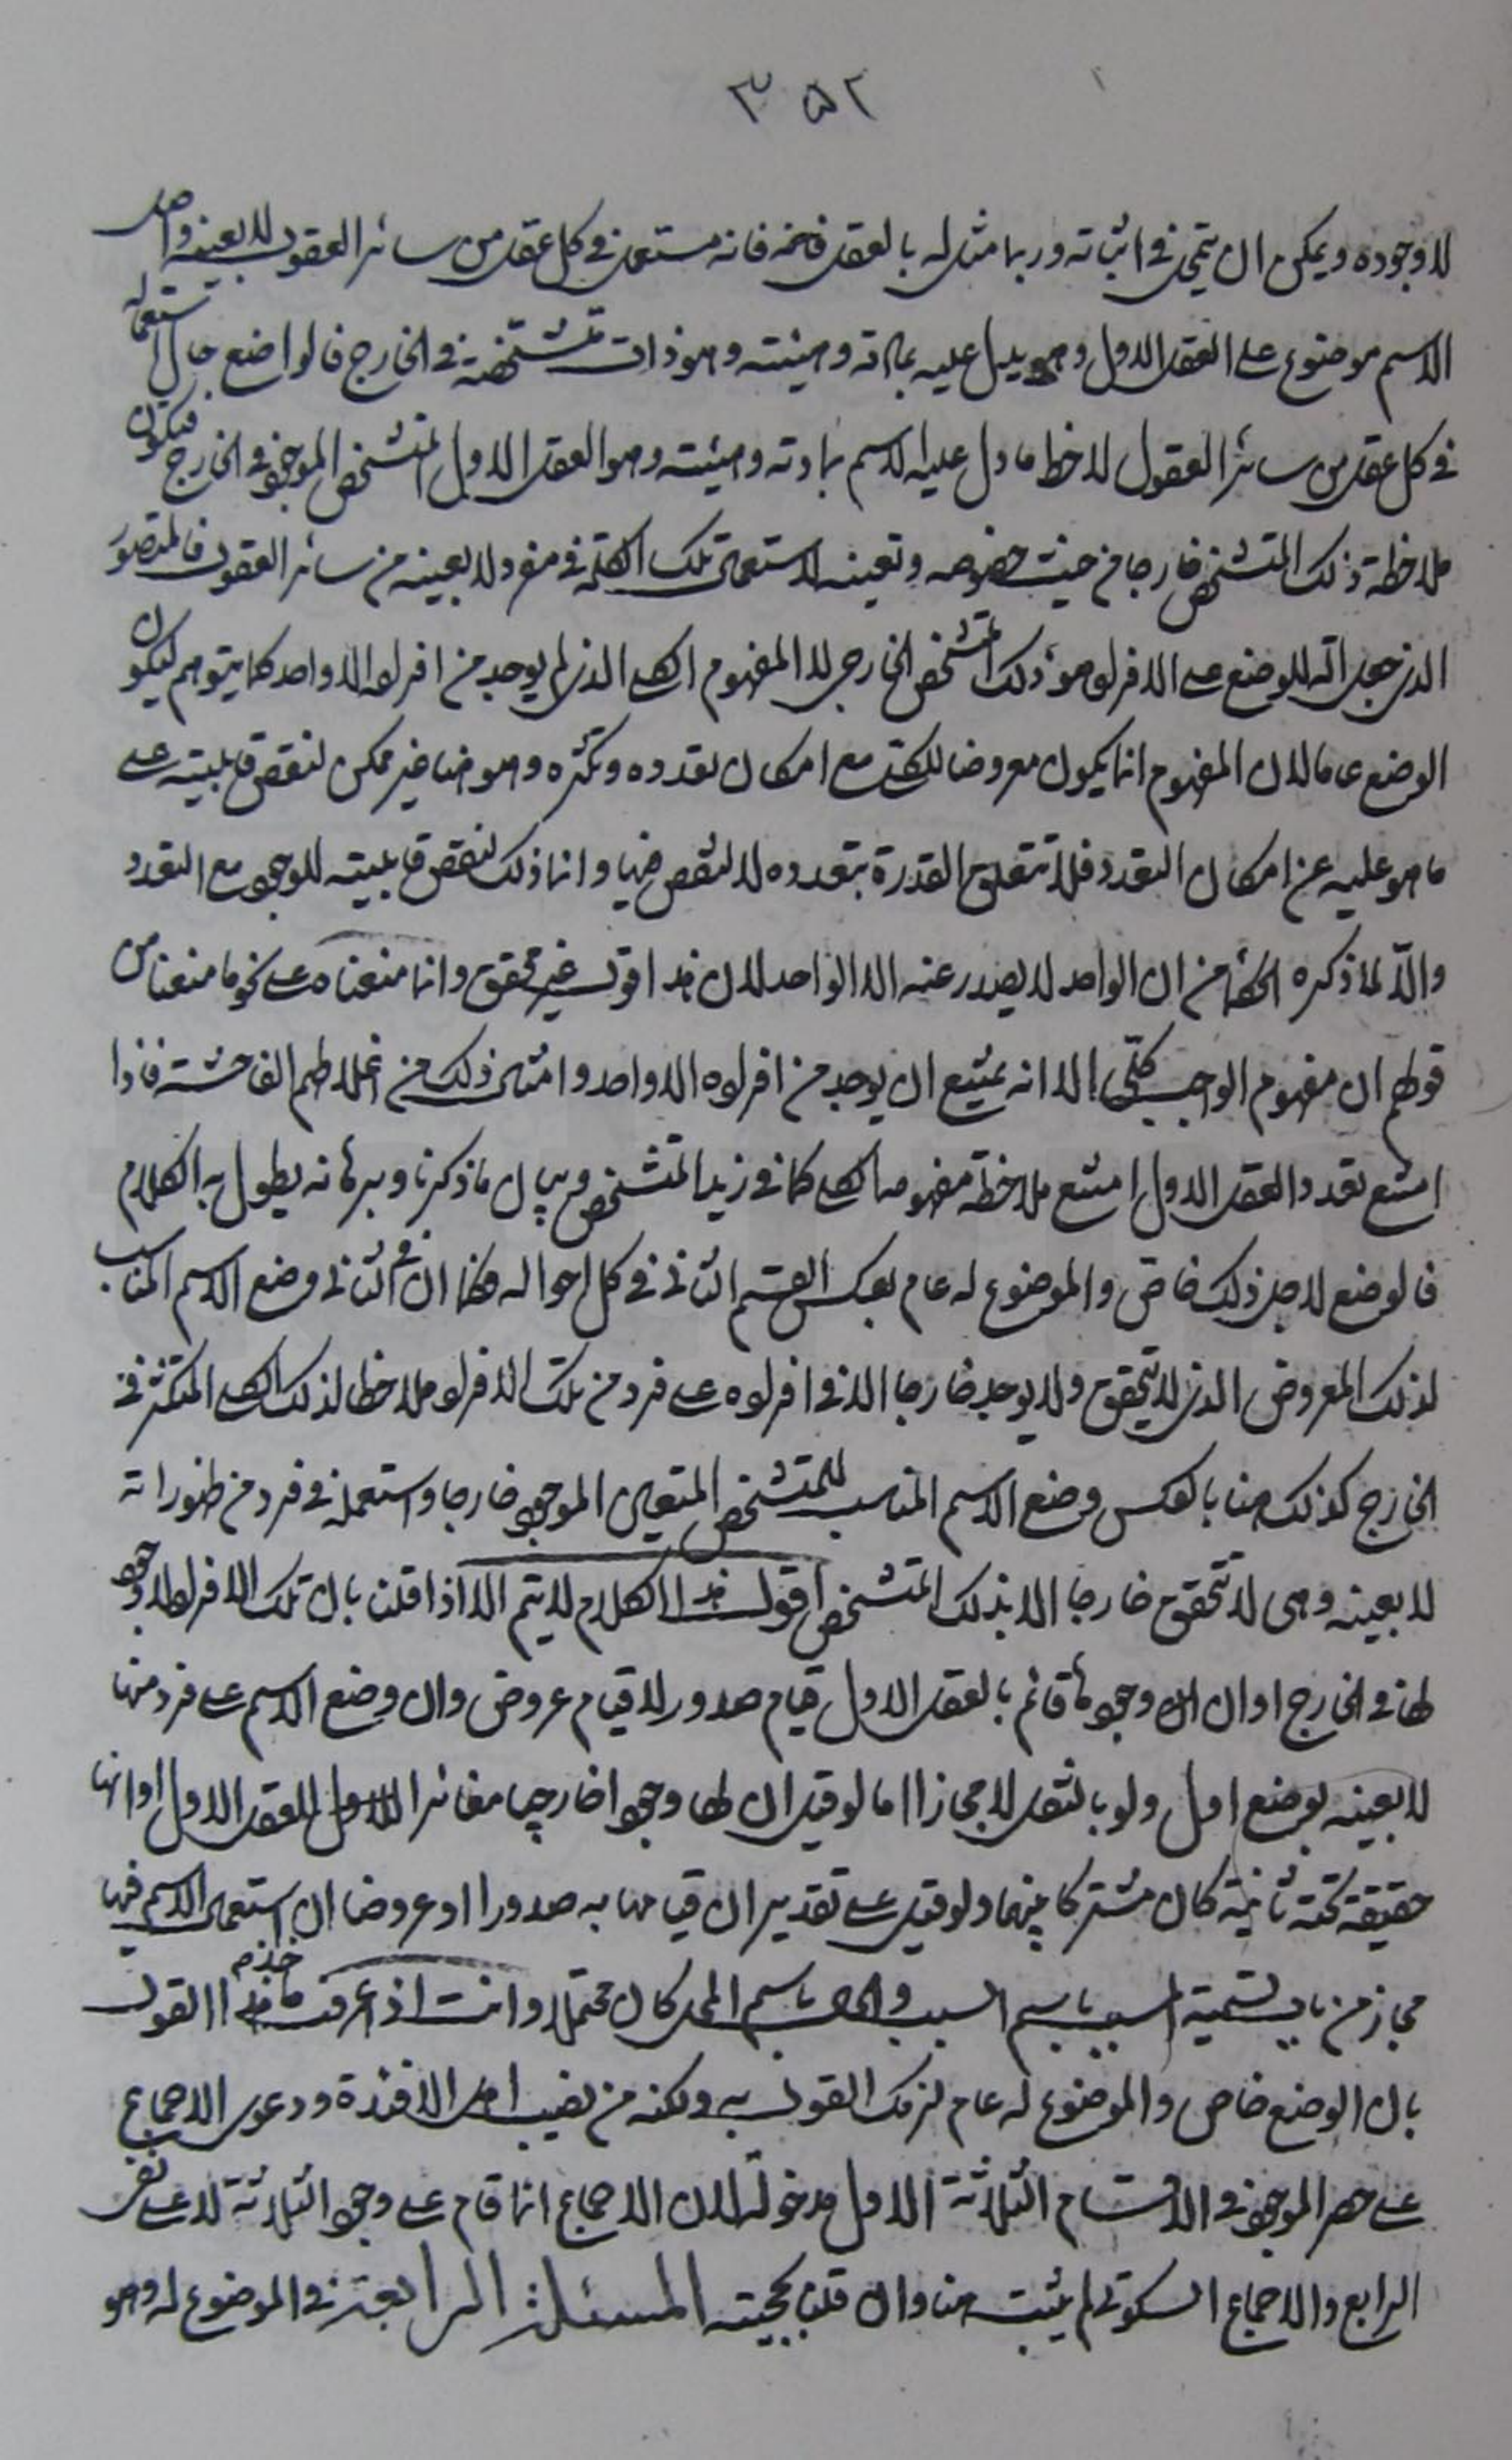 ٣٥٢
لا وجوده ويمكن ان يتمحل في اثباته وربما مثل له بالعقل فانه مستعمل في كل عقل من سائر العقول لا بعينه واصل
الاسم موضوع على العقل الاول وهو يدل عليه بمادته وهيئته وهو ذات متشخصة في الخارج فالواضع حال استعماله
في كل عقل من سائر العقول لاحظ ما دل عليه الاسم بمادته وهيئته وهو العقل الاول المتشخص الموجود في الخارج فيكون
ملاحظة ذلك المتشخص خارجا من حيث خصوصه وتعينه لاستعمال تلك الكلمة في مفرد لا بعينه من سائر العقول فالمتصور
الذي جعل آلة للوضع على الافراد هو ذلك المتشخص الخارجي لا المفهوم الكلي الذي لم يوجد من افراده الا واحد كما يتوهم ليكون
الوضع عاما لان المفهوم انما يكون معروضا للكلية مع امكان تعدده وتكثره وهو هنا غير ممكن لنقص قابليته على
ما هو عليه عن امكان التعدد فلا تتعلق القدرة بتعدده لا لنقص فيها وانما ذلك لنقص قابليته للوجود مع التعدد
والا لما ذكره الحكماء من ان الواحد لا يصدر عنه الا الواحد لان هذا قول غير محقق وانما منعناه على نحو ما منعنا من
قولهم ان مفهوم الواجب كلي الا انه يمتنع ان يوجد من افراده الا واحد وامثال ذلك من اغلاطهم الفاحشة فاذا
امتنع تعدد العقل الاول امتنع ملاحظة مفهومه الكلي كما في زيد المتشخص وبيان ما ذكرنا وبرهانه يطول به الكلام
فالوضع لاجل ذلك خاص والموضوع له عام بعكس القسم الثاني في كل احواله فكما ان في الثاني وضع الاسم المناسب
لذلك المعروض الذي لا يتحقق ولا يوجد خارجا الا في افراده على فرد من تلك الافراد ملاحظا لذلك الكلي المتكثر في
الخارج كذلك هنا بالعكس وضع الاسم المناسب للمتشخص المتعين الموجود خارجا واستعمله في فرد من ظهوراته
لا بعينه وهي لا تتحقق خارجا الا بذلك المتشخص اقول هذا الكلام لا يتم الا اذا قلنا بان تلك الافراد لا وجود
لها في الخارج او ان وجودها قائم بالعقل الاول قيام صدور لا قيام عروض وان وضع الاسم على فرد منها
لا بعينه بوضع اول ولو بالنقل لا مجازا اما لو قيل ان لها وجودا خارجيا مغائرا للعقل الاول او انها
حقيقة تحته ثانية كان مشتركا بينهما ولو قيل على تقدير ان قيامها به صدورا او عروضا ان استعمال الاسم فيها
مجاز من باب تسمية المسبب باسم السبب والحال باسم المحل كان محتملا وانت اذا عرفت ما في هذا القول
بان الوضع خاص والموضوع له عام لزمك القول به ولكنه من نصيب اهل الافئدة ودعوى الاجماع
على حصر الموجود في الاقسام الثلاثة الاول مدخولة لان الاجماع انما قام على وجود الثلاثة لا على نفي
الرابع والاجماع السكوتي لم يثبت هنا وان قلنا بحجيته المسئلة الرابعة في الموضوع له وهو